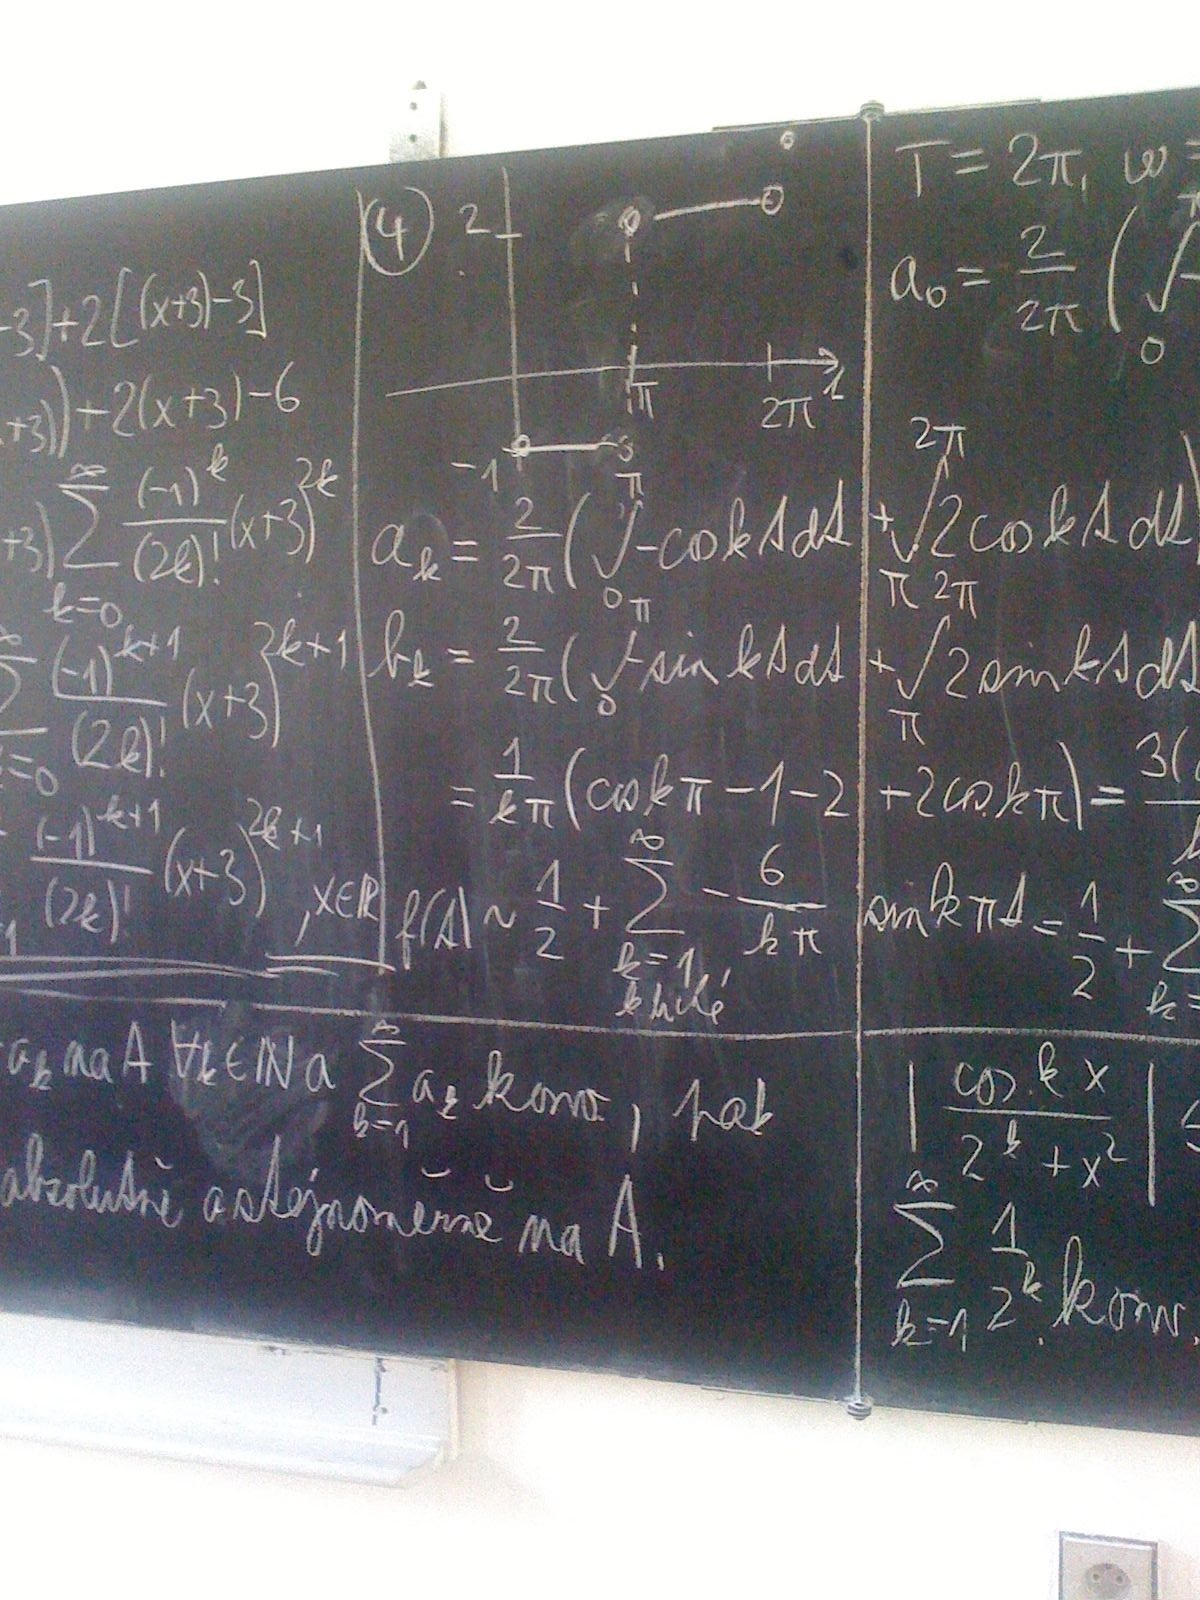 -3]+2[(x+3)-3]
+3))+2(x+3)-6
+3) ∑_{k=0}^{∞} \frac{(-1)^k}{(2k)!} (x+3)^{2k}
∑_{k=0}^{∞} \frac{(-1)^{k+1}}{(2k)!} (x+3)^{2k+1}
\frac{(-1)^{k+1}}{(2k)!} (x+3)^{2k+1}, x∈ℝ
④
2
π
2π
-1
a_k = \frac{2}{2π} (∫_0^π -cos kt dt + ∫_π^{2π} 2 cos kt dt)
b_k = \frac{2}{2π} (∫_0^π -sin kt dt + ∫_π^{2π} 2 sin kt dt
= \frac{1}{kπ} (cos kπ -1-2 +2 cos kπ) = \frac{3(
f(t) ~ \frac{1}{2} + ∑_{k=1, k liché}^{∞} -\frac{6}{kπ} sin kπt = \frac{1}{2} + ∑_{k=}^{∞}
T = 2π, ω =
a_0 = \frac{2}{2π} (∫_0^π
a_k na A ∀k∈ℕ a ∑_{k=1}^{∞} a_k konv., pak
absolutně a stejnoměrně na A.
|\frac{cos kx}{2^k + x^2}| ≤
∑_{k=1}^{∞} \frac{1}{2^k} konv.